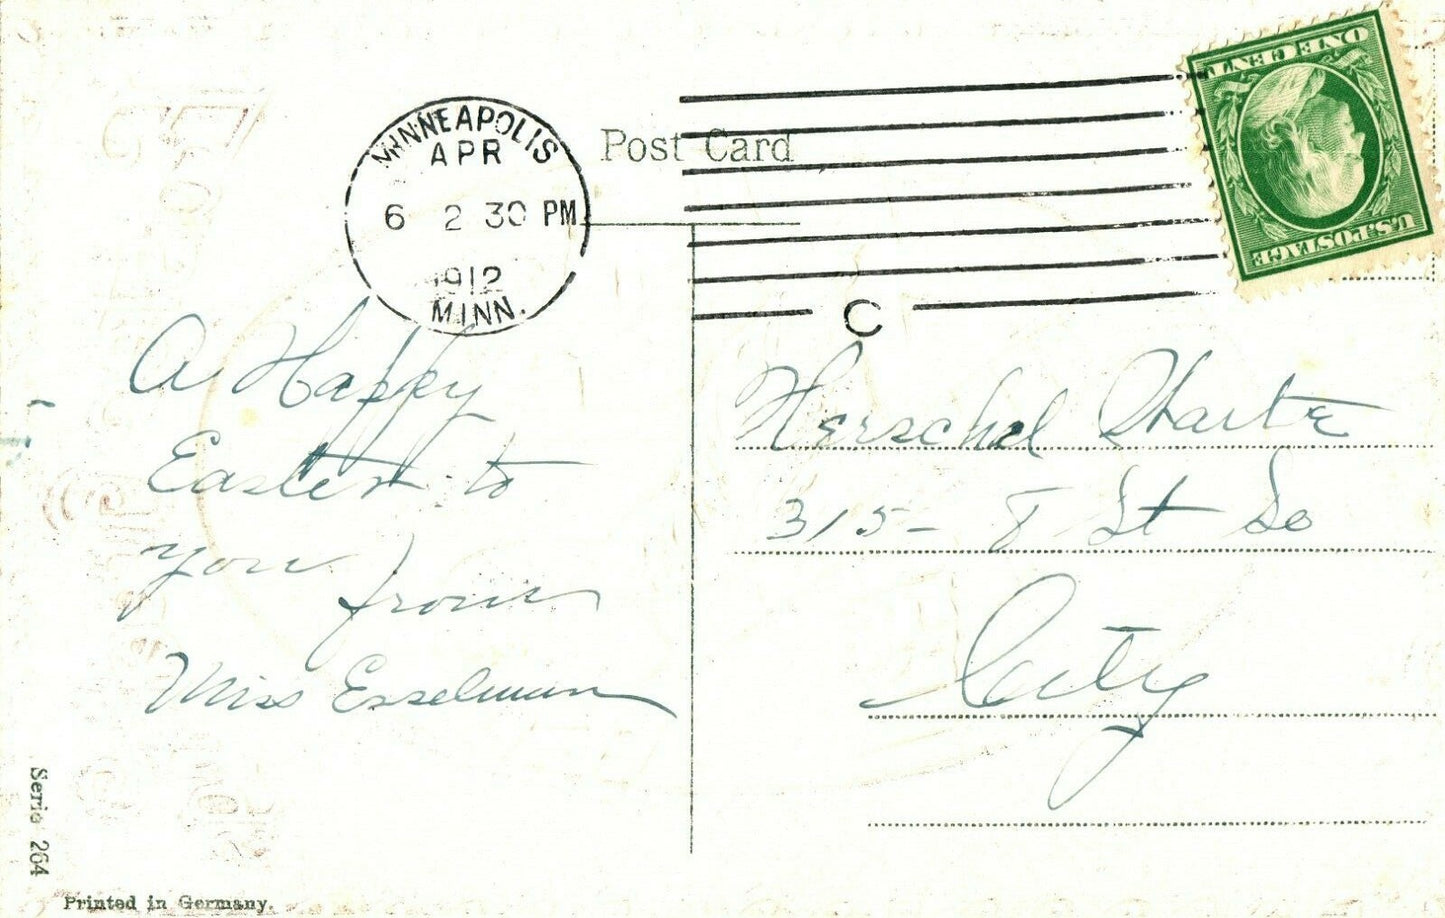 MINNEAPOLIS
APR
6 2 30 PM
1912
MINN.
C
Post Card
ONE CENT
U.S. POSTAGE
A Happy
Easter to
you from
Miss Esselman
Herschel
315- 8 St So
City
Serie 264
Printed in Germany.